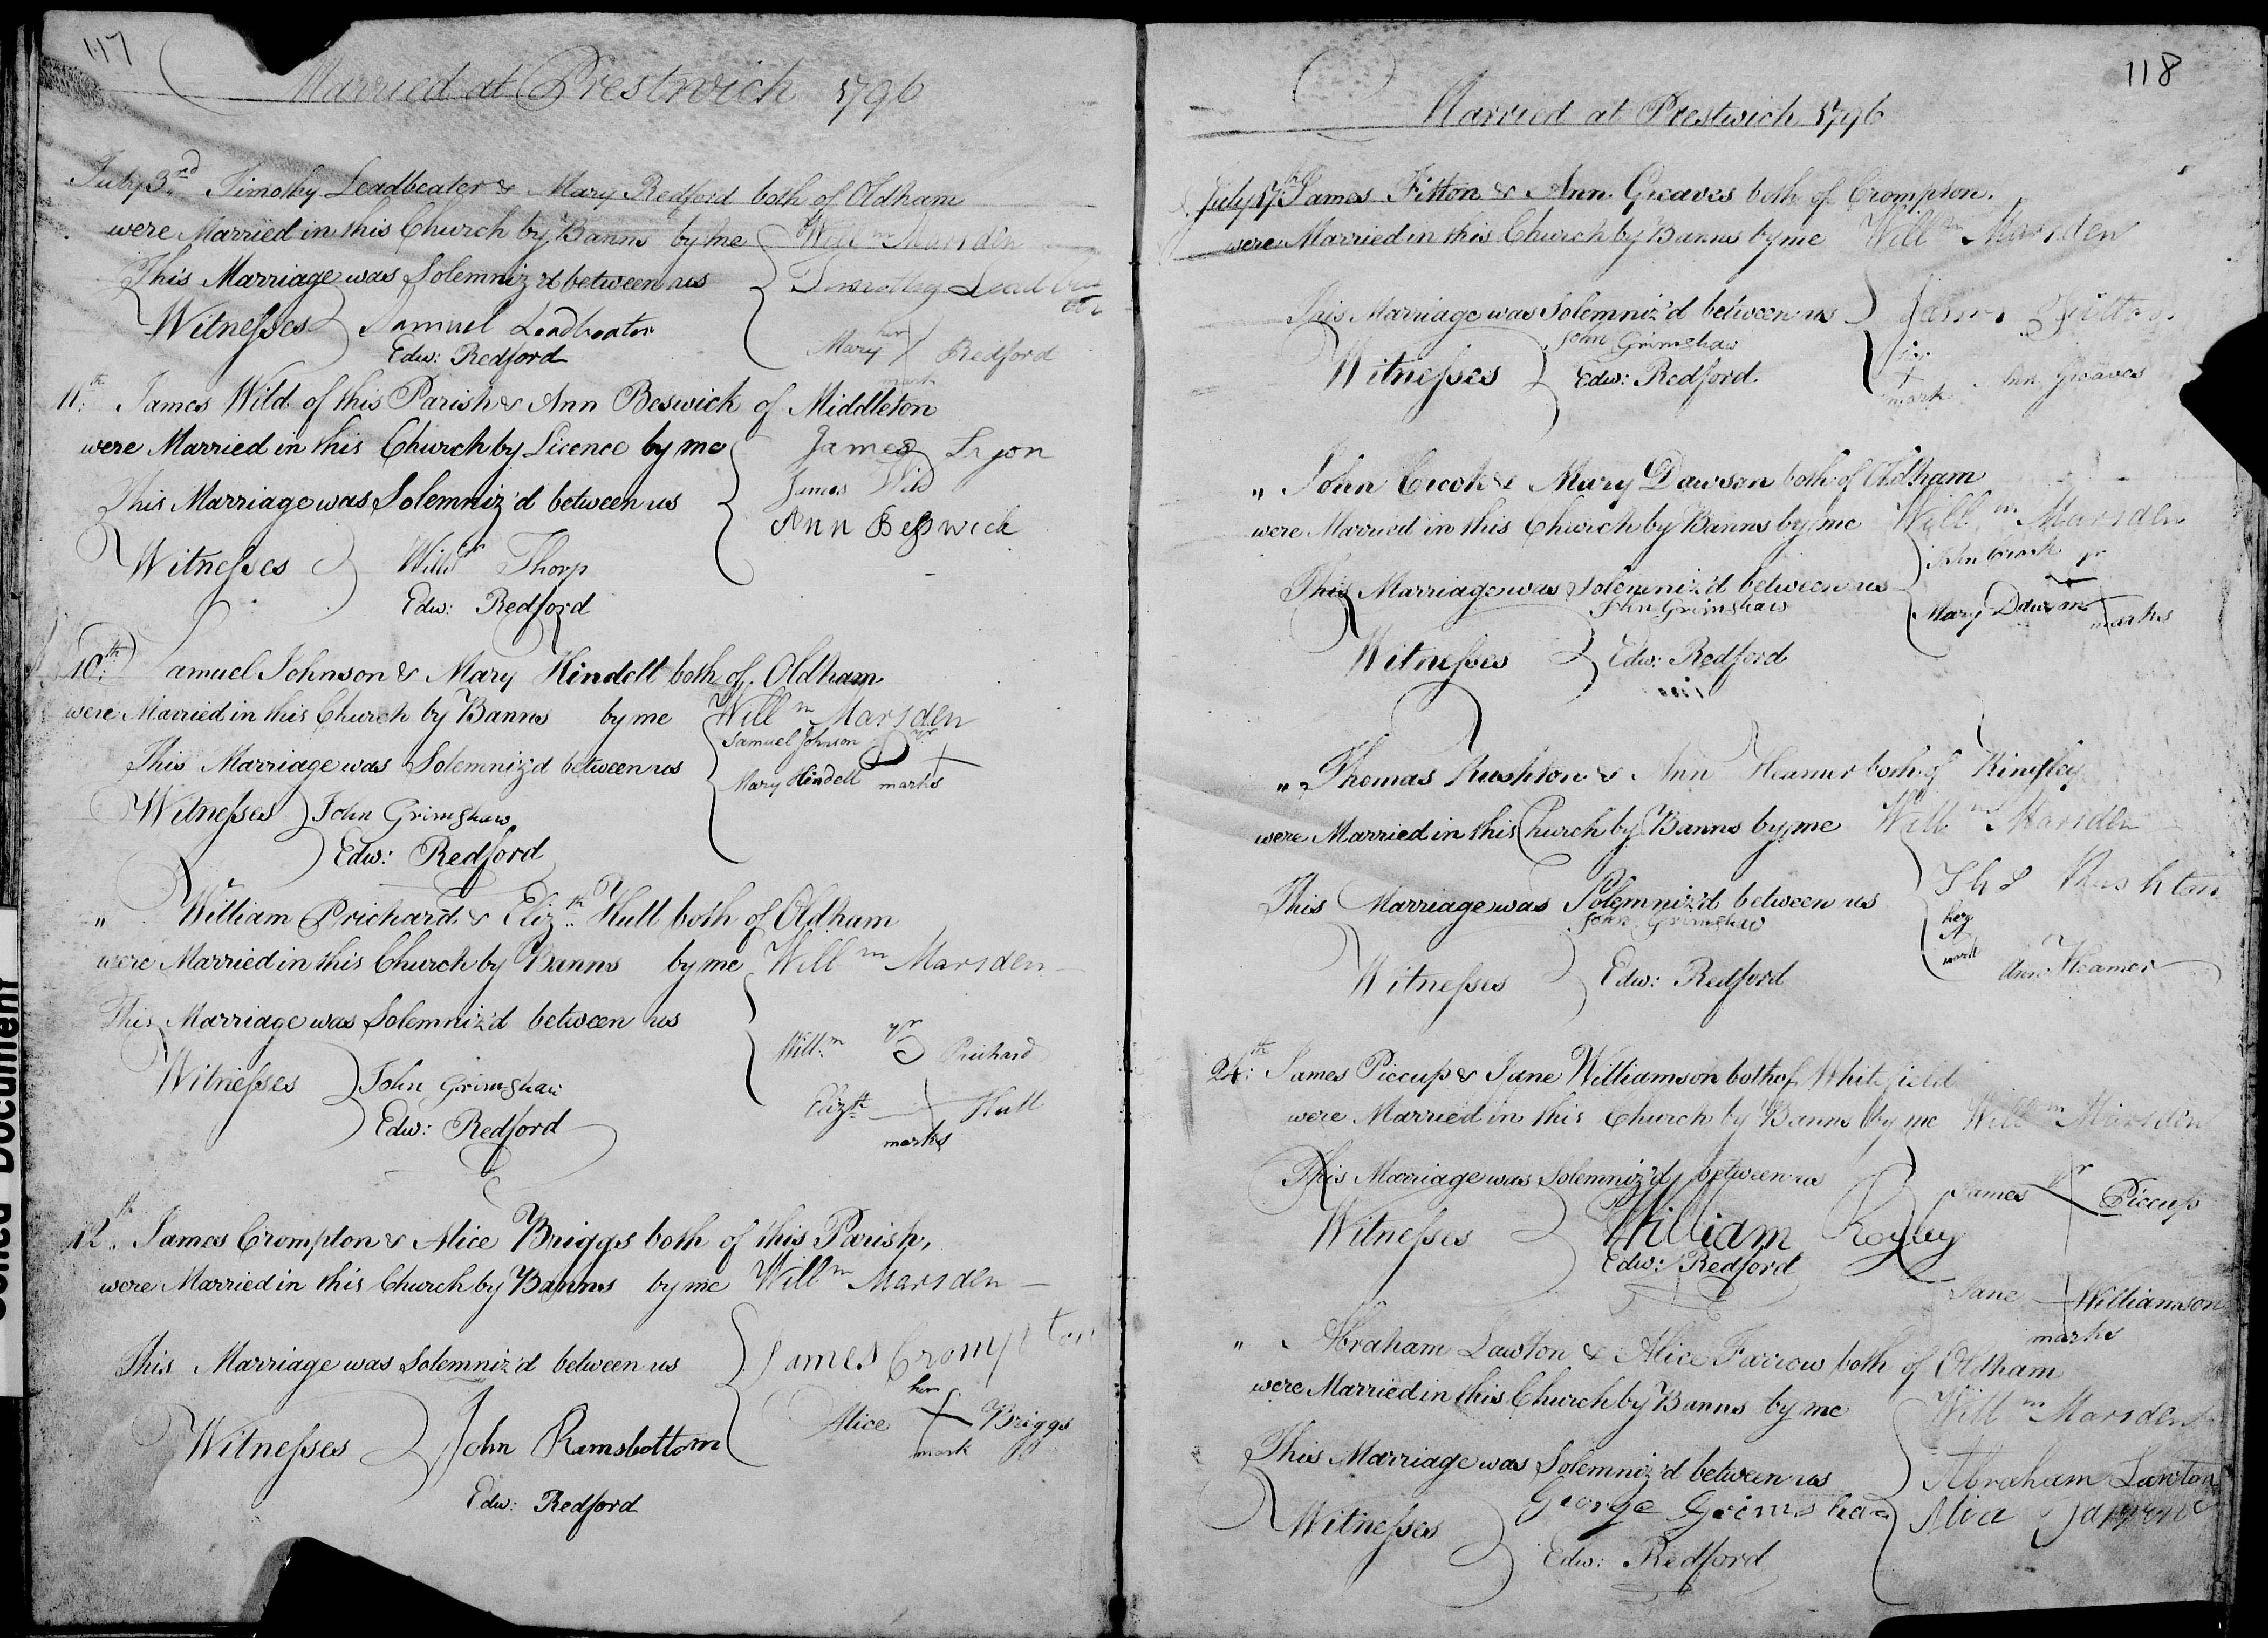 117
Married at Prestwich 1796
July 3rd Timothy Leadbeater & Mary Redford both of Oldham
were Married in this Church by Banns by me Willm Marsden
This Marriage was Solemniz'd between us Timothy Lead bea
ter
Witnesses Samuel Leadbeater
her
Mary Redford
mark
Edw: Redford
11th James Wild of this Parish & Ann Beswick of Middleton
were Married in this Church by Licence by me James Lyon
This Marriage was Solemniz'd between us James Wild
Ann Beswick
Witnesses Willm Thorp
Edw: Redford
10th Samuel Johnson & Mary Hindell both of Oldham
were Married in this Church by Banns by me Willm Marsden
This Marriage was Solemniz'd between us Samuel Johnson yr
Mary Hindell marks
Witnesses John Grimshaw
Edw: Redford
" William Prichard & Elizth Hull both of Oldham
were Married in this Church by Banns by me Willm Marsden
This Marriage was Solemniz'd between us
Willm yr Prichard
Witnesses John Grimshaw
Elizth Hull
marks
Edw: Redford
12th James Crompton & Alice Briggs both of this Parish,
were Married in this Church by Banns by me Willm Marsden
This Marriage was Solemniz'd between us James Crompton
her
Alice Briggs
mark
Witnesses John Ramsbottom
Edw: Redford
118
Married at Prestwich 1796
July 17th James Fitton & Ann Greaves both of Crompton.
were Married in this Church by Banns by me Willm Marsden
This Marriage was Solemniz'd between us James Fitton
John Grimshaw
Witnesses Edw: Redford.
her
Ann Greaves
mark
" John Crook & Mary Dawson both of Oldham
were Married in this Church by Banns by me Willm Marsden
John Crook yr
This Marriage was Solemniz'd between us
John Grimshaw
Mary Dawson marks
Witnesses Edw: Redford
" Thomas Rushton & Ann Heamer both of
were Married in this Church by Banns by me Willm Marsden
This Marriage was Solemniz'd between us Thos Rushton
John Grimshaw
her
mark
Ann Heamer
Witnesses Edw: Redford
24th James Piccup & Jane Williamson both of Whitefield
were Married in this Church by Banns by me Willm Marsden
This Marriage was Solemniz'd between us
James yr Piccup
Witnesses William Royley
Edw: Redford
Jane Williamson
marks
" Abraham Lawton & Alice Farrow both of Oldham
were Married in this Church by Banns by me Willm Marsden
This Marriage was Solemniz'd between us Abraham Lawton
George Grimshaw Alice
Witnesses
Edw: Redford
Document